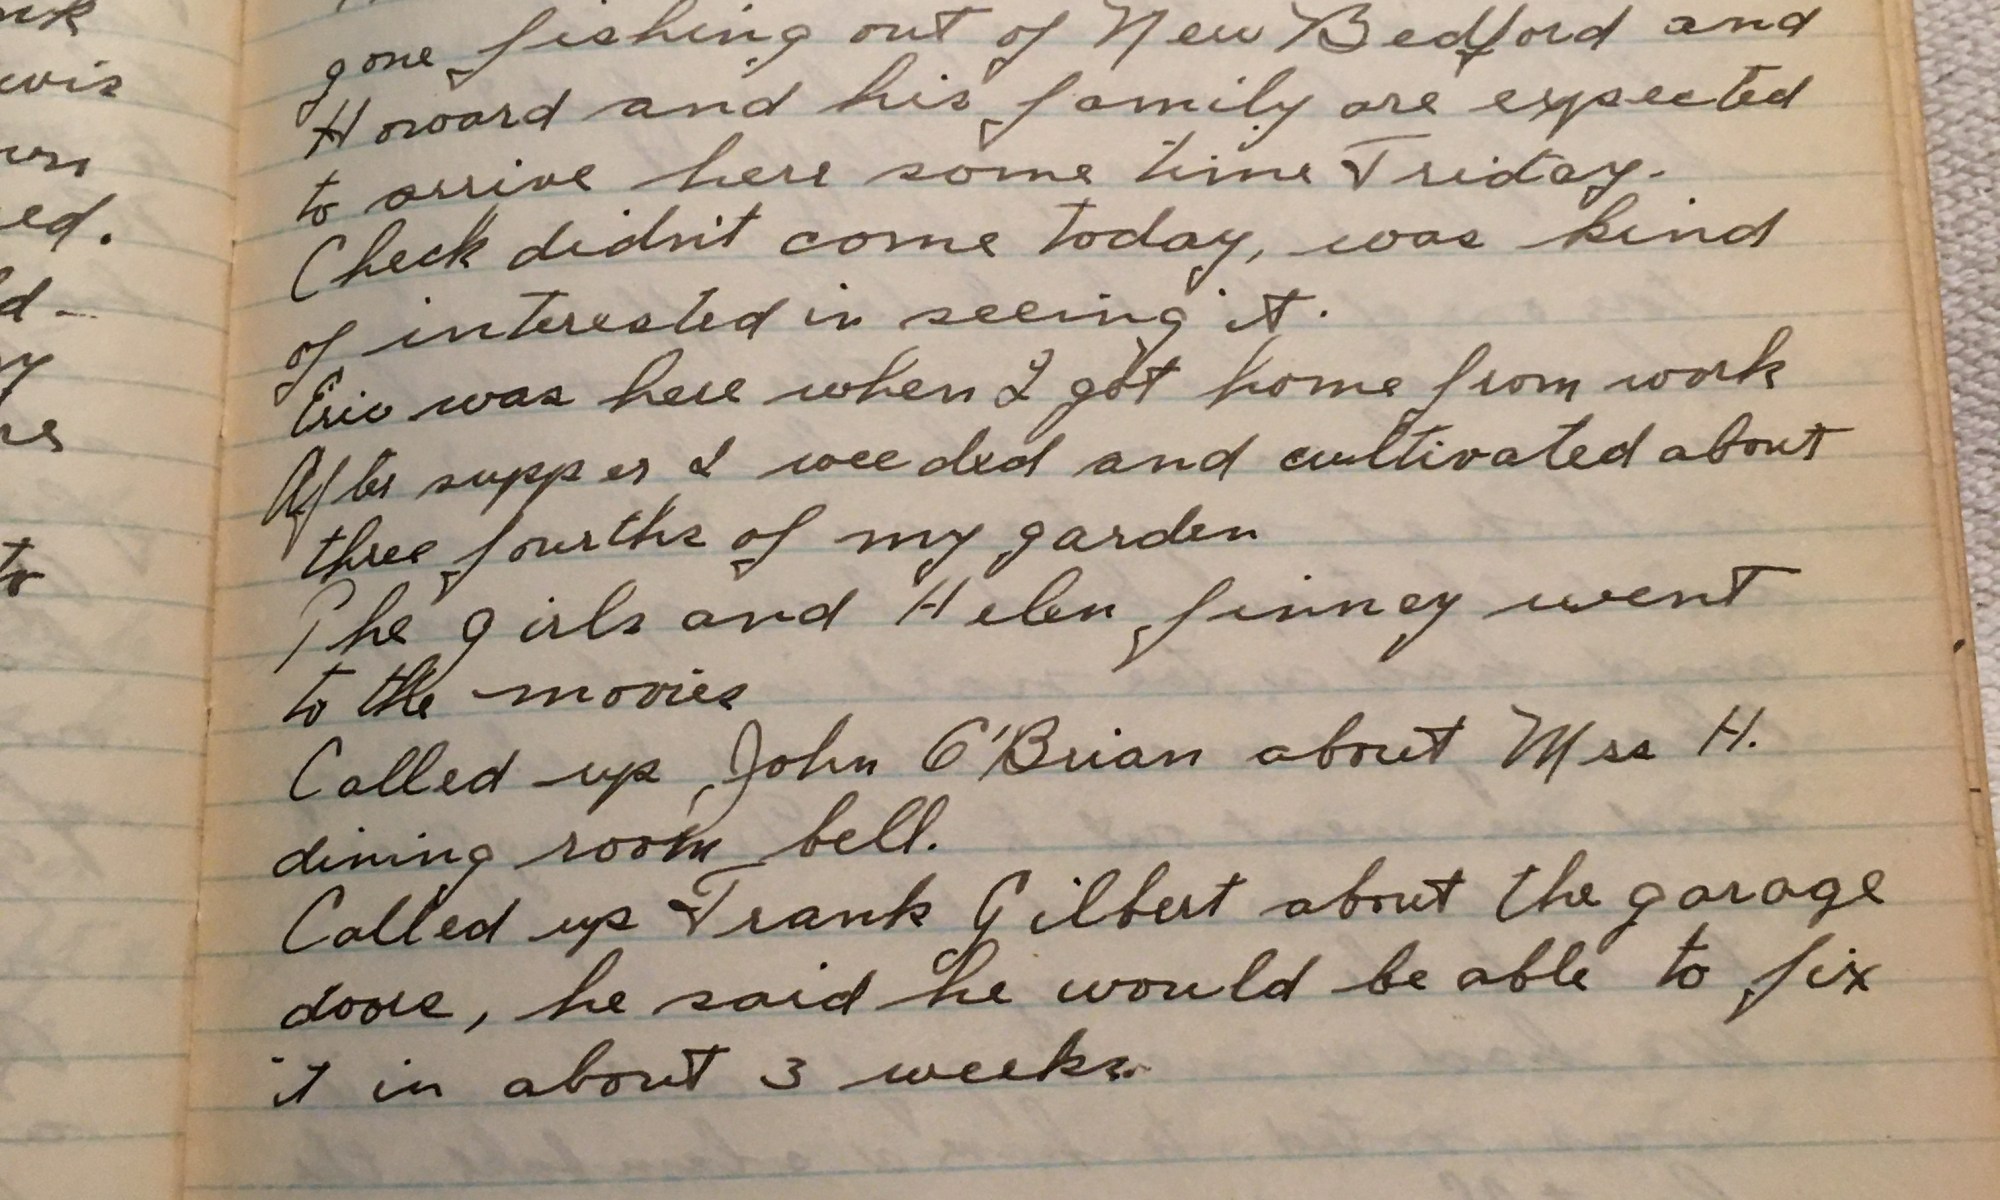 nk
wis
wn
ed.
d-
y
es
to
gone fishing out of New Bedford and
Howard and his family are expected
to arrive here some time Friday.
Check didn't come today, was kind
of interested in seeing it.
Eric was here when I got home from work
After supper I weeded and cultivated about
three fourths of my garden
The girls and Helen finney went
to the movies
Called up John O'Brian about Mrs H.
dining room bell.
Called up Frank Gilbert about the garage
doors, he said he would be able to fix
it in about 3 weeks.